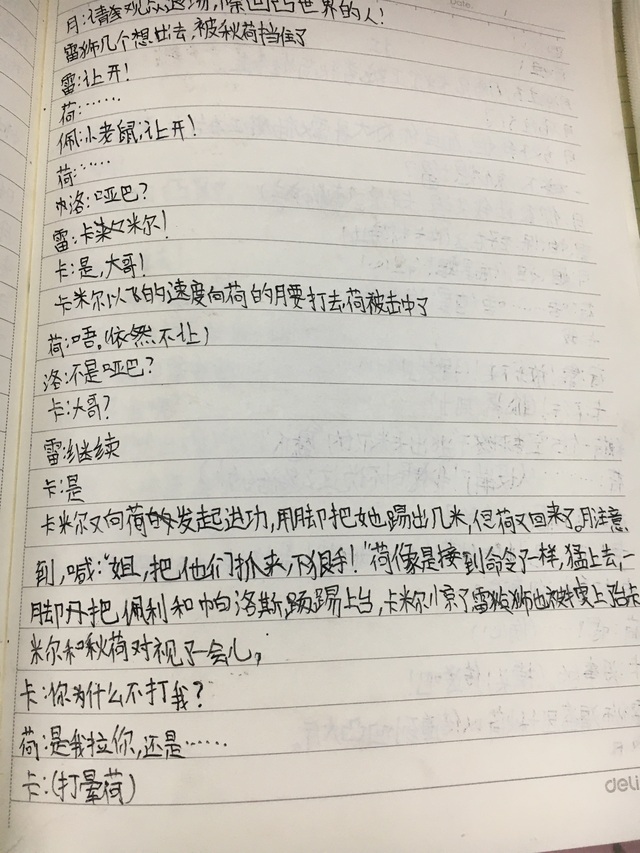 月:请多观众这场,来回凹凸世界的人!
雷狮几个想出去,被秋荷挡住了
雷:让开!
荷:……
佩:小老鼠,让开!
荷:……
帕洛:哑巴?
雷:卡米尔!
卡:是,大哥!
卡米尔以飞的速度向荷的腰打去,荷被击中了
荷:唔。(依然不让)
洛:不是哑巴?
卡:大哥?
雷:继续
卡:是
卡米尔又向荷发起进攻,用脚把她踢出几米,但荷又回来了。月注意
到,喊:"姐,把他们抓来,下狠手!"荷像是接到命令了一样,猛上去,一
脚把佩利和帕洛斯踢上台,卡米尔小京了雷狮也被上了台卡
米尔和秋荷对视了一会儿,
卡:你为什么不打我?
荷:是我拉你,还是……
卡:(打晕荷)
deli